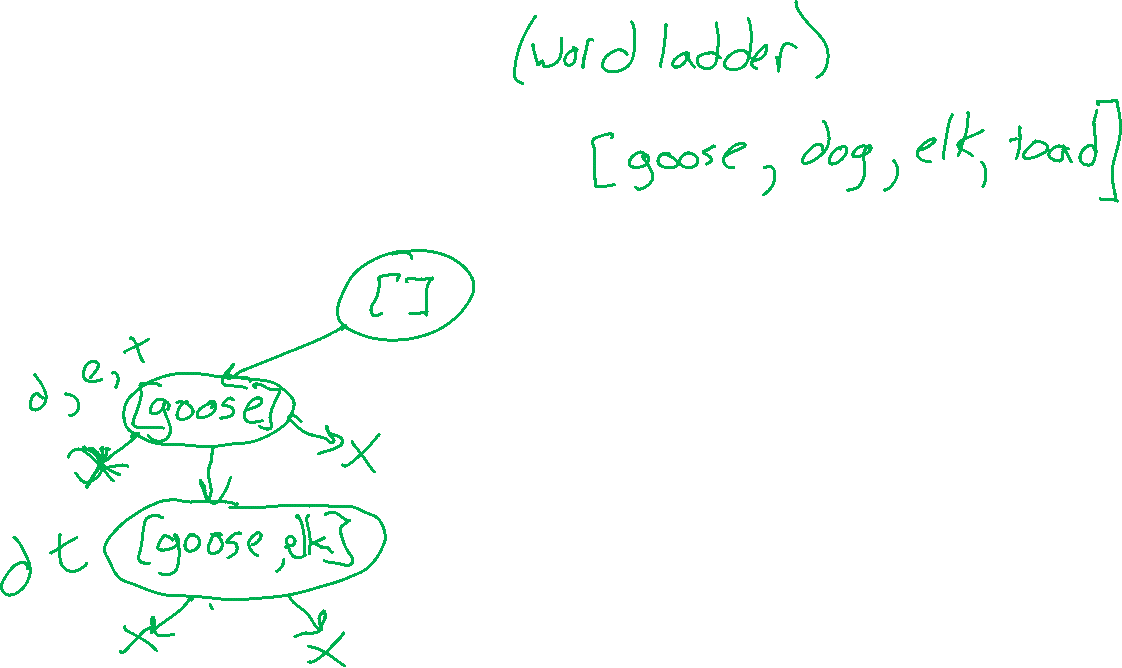 (word ladder)
[goose, dog, elk, toad]
[]
d, e, t
[goose]
X
[goose, elk]
d t
X
X